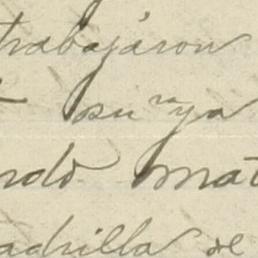 trabajáron
suya
ndo mat
adrilla de